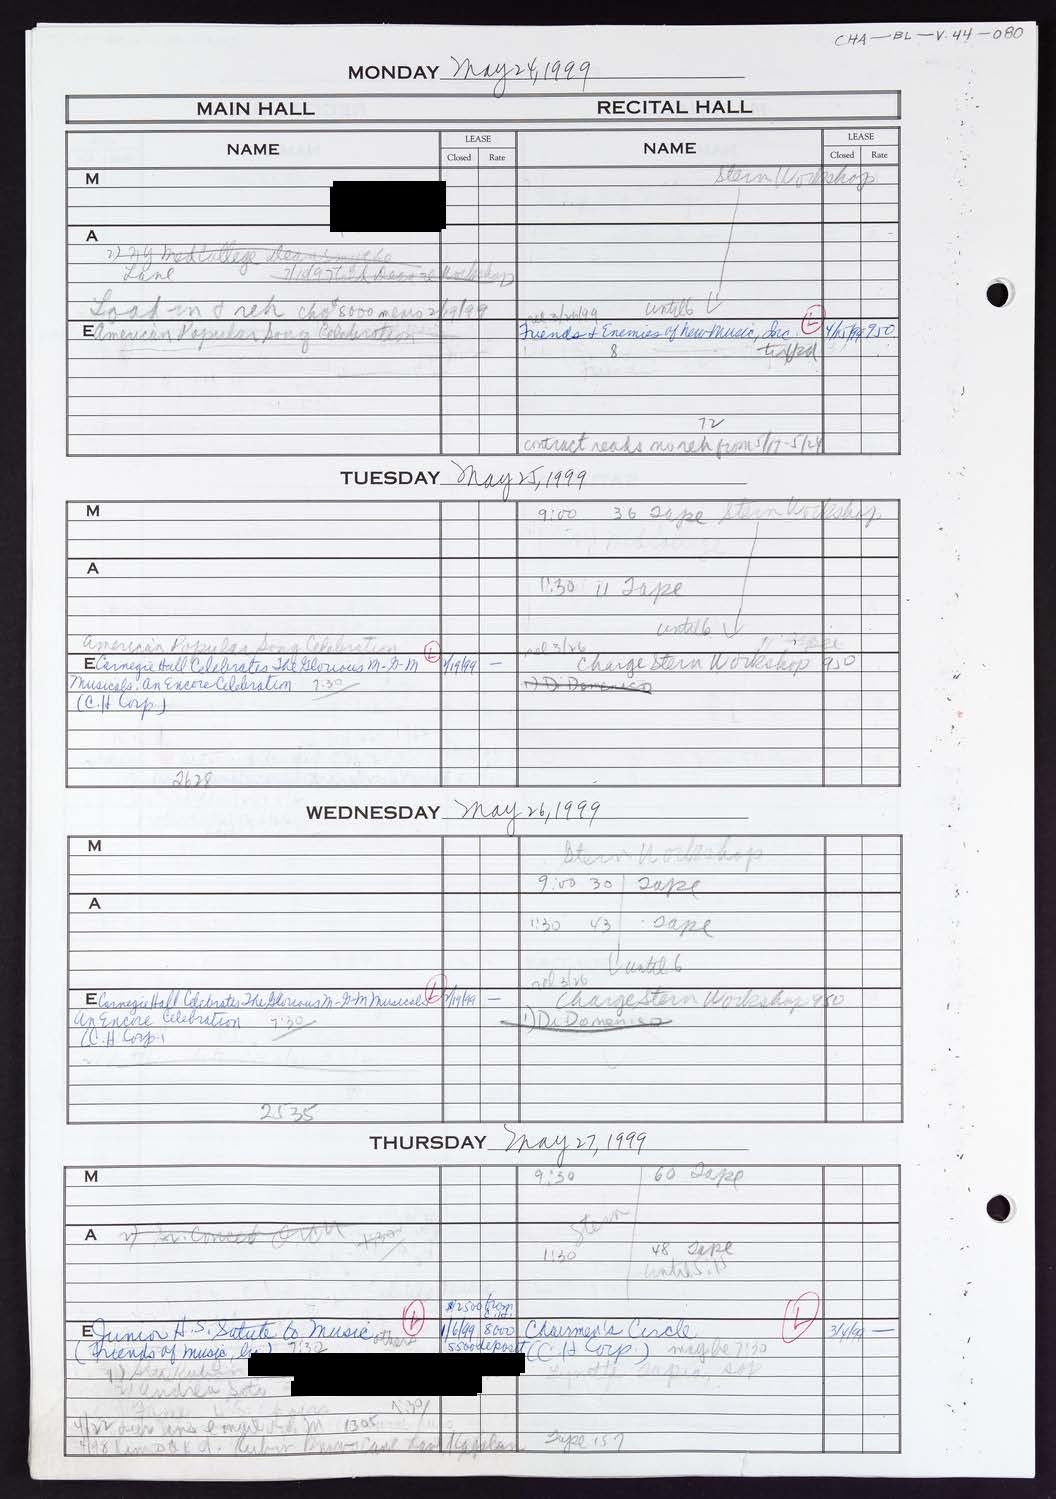 CHA-BL-V.44-080
MONDAY May 24, 1999
MAIN HALL RECITAL HALL
NAME LEASE Closed Rate NAME LEASE Closed Rate
M Stern Workshop
A
Lane
Load in & reh chg $8000 memo 2/19/99 rel 3/26/99 until 6
E American Popular Song Celebration Friends & Enemies of New Music, Inc. L 4/15/99 950
8
72
contract reads no reh from 5/17-5/24
TUESDAY May 25, 1999
M 9:00 36 Tape Stern Workshop
A
1:30 11 Tape
until 6
American Popular Song Celebration L rel 3/26
E Carnegie Hall Celebrates The Glorious M-G-M 2/19/99 — Charge Stern Workshop 950
Musicals: An Encore Celebration 7:30 1) Di Domenico
(C.H Corp.)
2628
WEDNESDAY May 26, 1999
M Stern Workshop
9:00 30 Tape
A
1:30 43 Tape
until 6
rel 3/26
E Carnegie Hall Celebrates The Glorious M-G-M Musicals L 2/19/99 — Charge Stern Workshop 950
An Encore Celebration 7:30 1) Di Domenico
(C.H Corp.)
2535
THURSDAY May 27, 1999
M 9:30 60 Tape
Stern
A
1:30 48 Tape
until 5:15
$2500 from C.H.
E Junior H.S. Salute to Music others L 1/6/99 8000 Chairmen's Circle L 3/4/99 —
(Friends of Music, Inc) 7:30 5500 deposit (C H Corp.) maybe 7:30
2) Andrea
4/22 1305
Tape 157